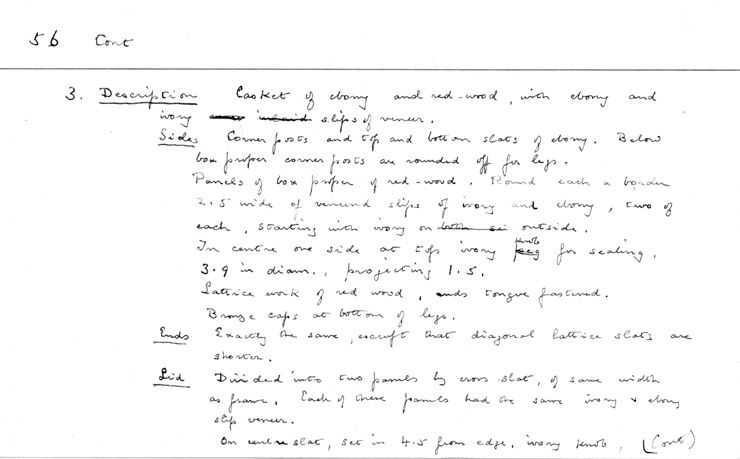 56 Cont
3. Description Casket of ebony and red-wood, with ebony and
ivory inlaid slips of veneer.
Sides Corner posts and top and bottom slats of ebony. Below
box proper corner posts are rounded off for legs.
Panels of box proper of red-wood. Round each a border
2.5 wide of veneered slips of ivory and ebony, two of
each, starting with ivory on both si outside.
In centre one side at top ivory peg knob for sealing,
3.9 in diam., projecting 1.5.
Lattice work of red wood, ends tongue fastened.
Bronze caps at bottom of legs.
Ends Exactly the same, except that diagonal lattice slats are
shorter.
Lid Divided into two panels by cross-slat, of same width
as frame. Each of these panels had the same ivory & ebony
slip veneer.
On centre slat, set in 4.5 from edge, ivory knob, (Cont)